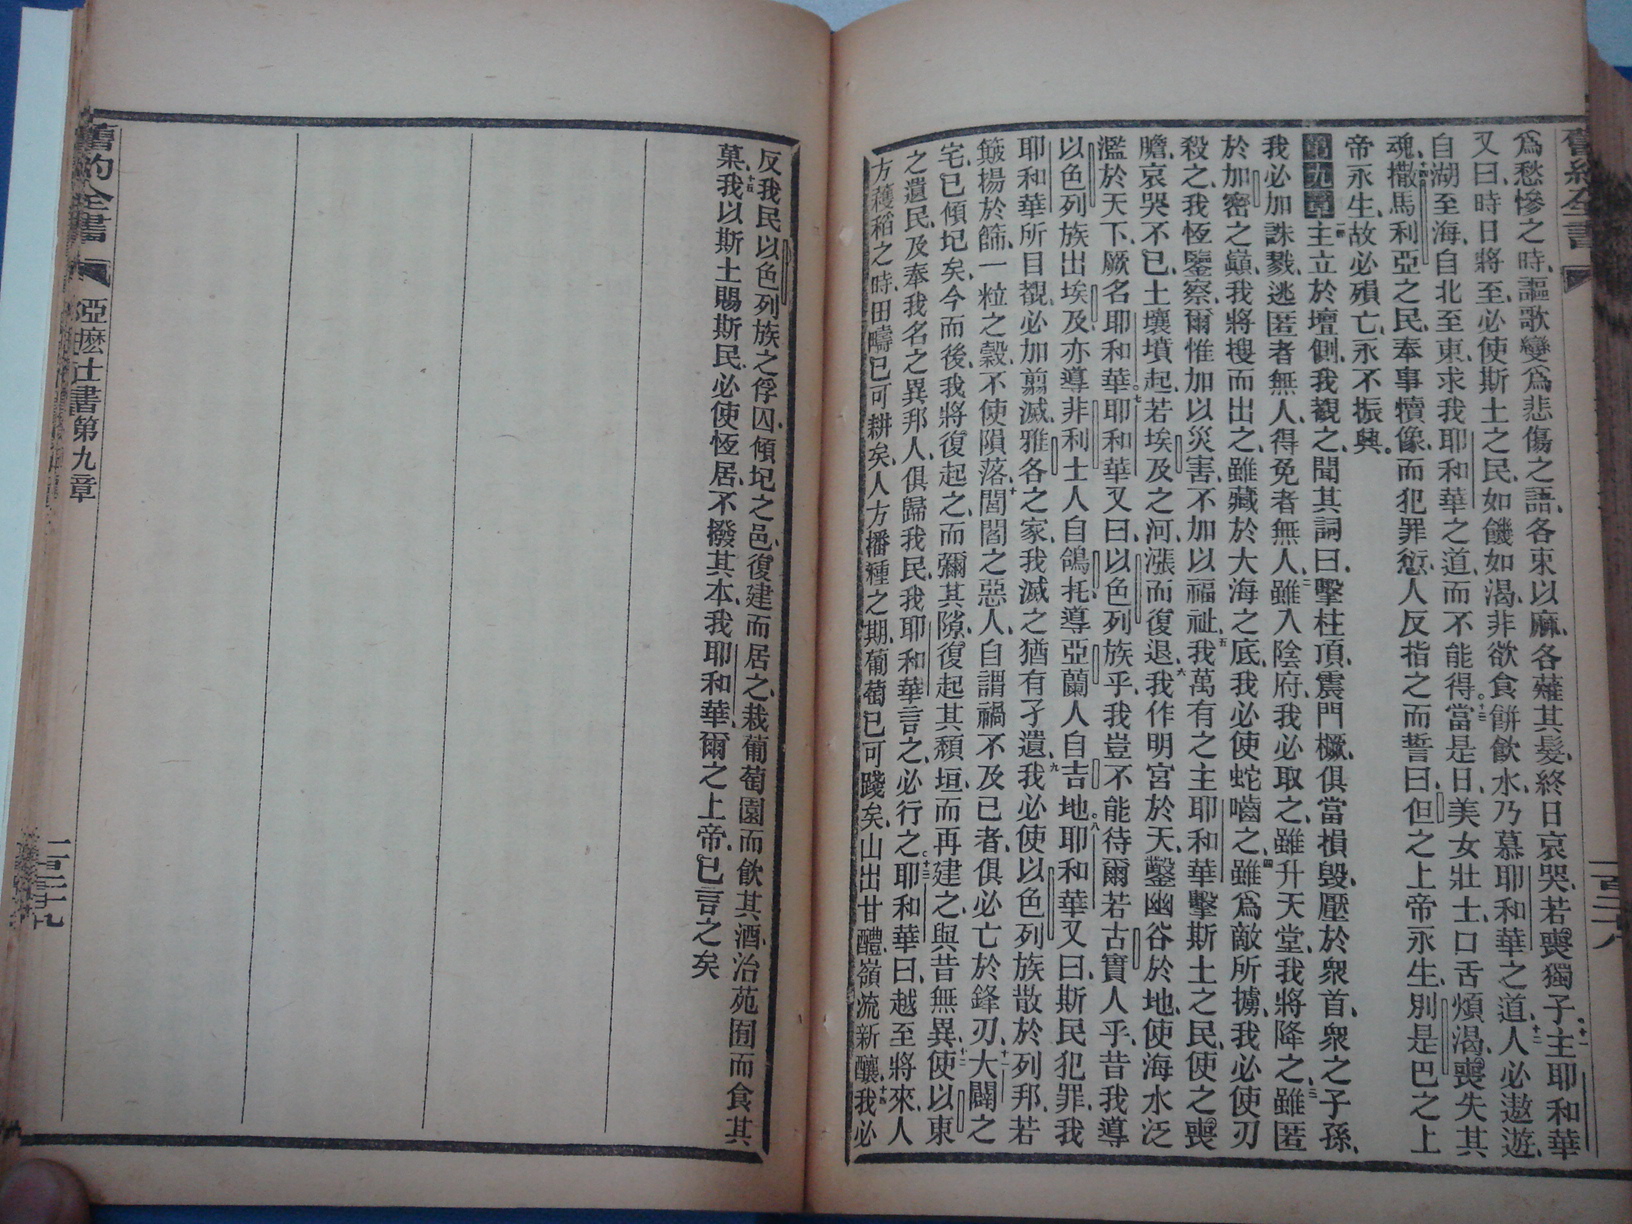 舊約全書
一百三十八
爲愁慘之時、謳歌變爲悲傷之語、各束以麻、各薙其髮、終日哀哭、若喪獨子、十一主耶和華
又曰、時日將至、必使斯土之民、如饑如渴、非欲食餅飲水、乃慕耶和華之道、十二人必遨遊、
自湖至海、自北至東、求我耶和華之道、而不能得、十三當是日、美女壯士、口舌煩渴、喪失其
魂、十四撒馬利亞之民、奉事犢像、而犯罪愆、人反指之而誓曰、但之上帝永生、別是巴之上
帝永生、故必殞亡、永不振興。
第九章 一主立於壇側、我觀之、聞其詞曰、擊柱頂、震門橛、俱當損毀、壓於衆首、衆之子孫、
我必加誅戮、逃匿者無人、得免者無人、二雖入陰府、我必取之、雖升天堂、我將降之、三雖匿
於加密之巔、我將搜而出之、雖藏於大海之底、我必使蛇嚙之、四雖爲敵所擄、我必使刃
殺之、我恆鑒察、爾惟加以災害、不加以福祉、五我萬有之主耶和華擊斯土之民、使之喪
膽、哀哭不已、土壤墳起、若埃及之河、漲而復退、六我作明宮於天、鑿幽谷於地、使海水泛
濫於天下、厥名耶和華。七耶和華又曰、以色列族乎、我豈不能待爾若古實人乎、昔我導
以色列族出埃及、亦導非利士人自鴿托、導亞蘭人自吉地、八耶和華又曰、斯民犯罪、我
耶和華所目覩、必加翦滅、雅各之家、我滅之猶有孑遺、九我必使以色列族散於列邦、若
簸揚於篩、一粒之穀、不使隕落、十閭閻之惡人、自謂禍不及己者、俱必亡於鋒刃、十一大闢之
宅、已傾圮矣、今而後、我將復起之、而彌其隙、復起其頹垣、而再建之、與昔無異、十二使以東
之遺民、及奉我名之異邦人、俱歸我民、我耶和華言之、必行之、十三耶和華曰、越至將來、人
方穫稻之時、田疇已可耕矣、人方播種之期、葡萄已可踐矣、山出甘醴、嶺流新釀、十四我必
反我民以色列族之俘囚、傾圮之邑、復建而居之、栽葡萄園而飲其酒、治苑囿而食其
菓、十五我以斯土賜斯民、必使恆居、不撥其本、我耶和華爾之上帝、已言之矣
舊約全書 亞麽士書第九章
一百三十九